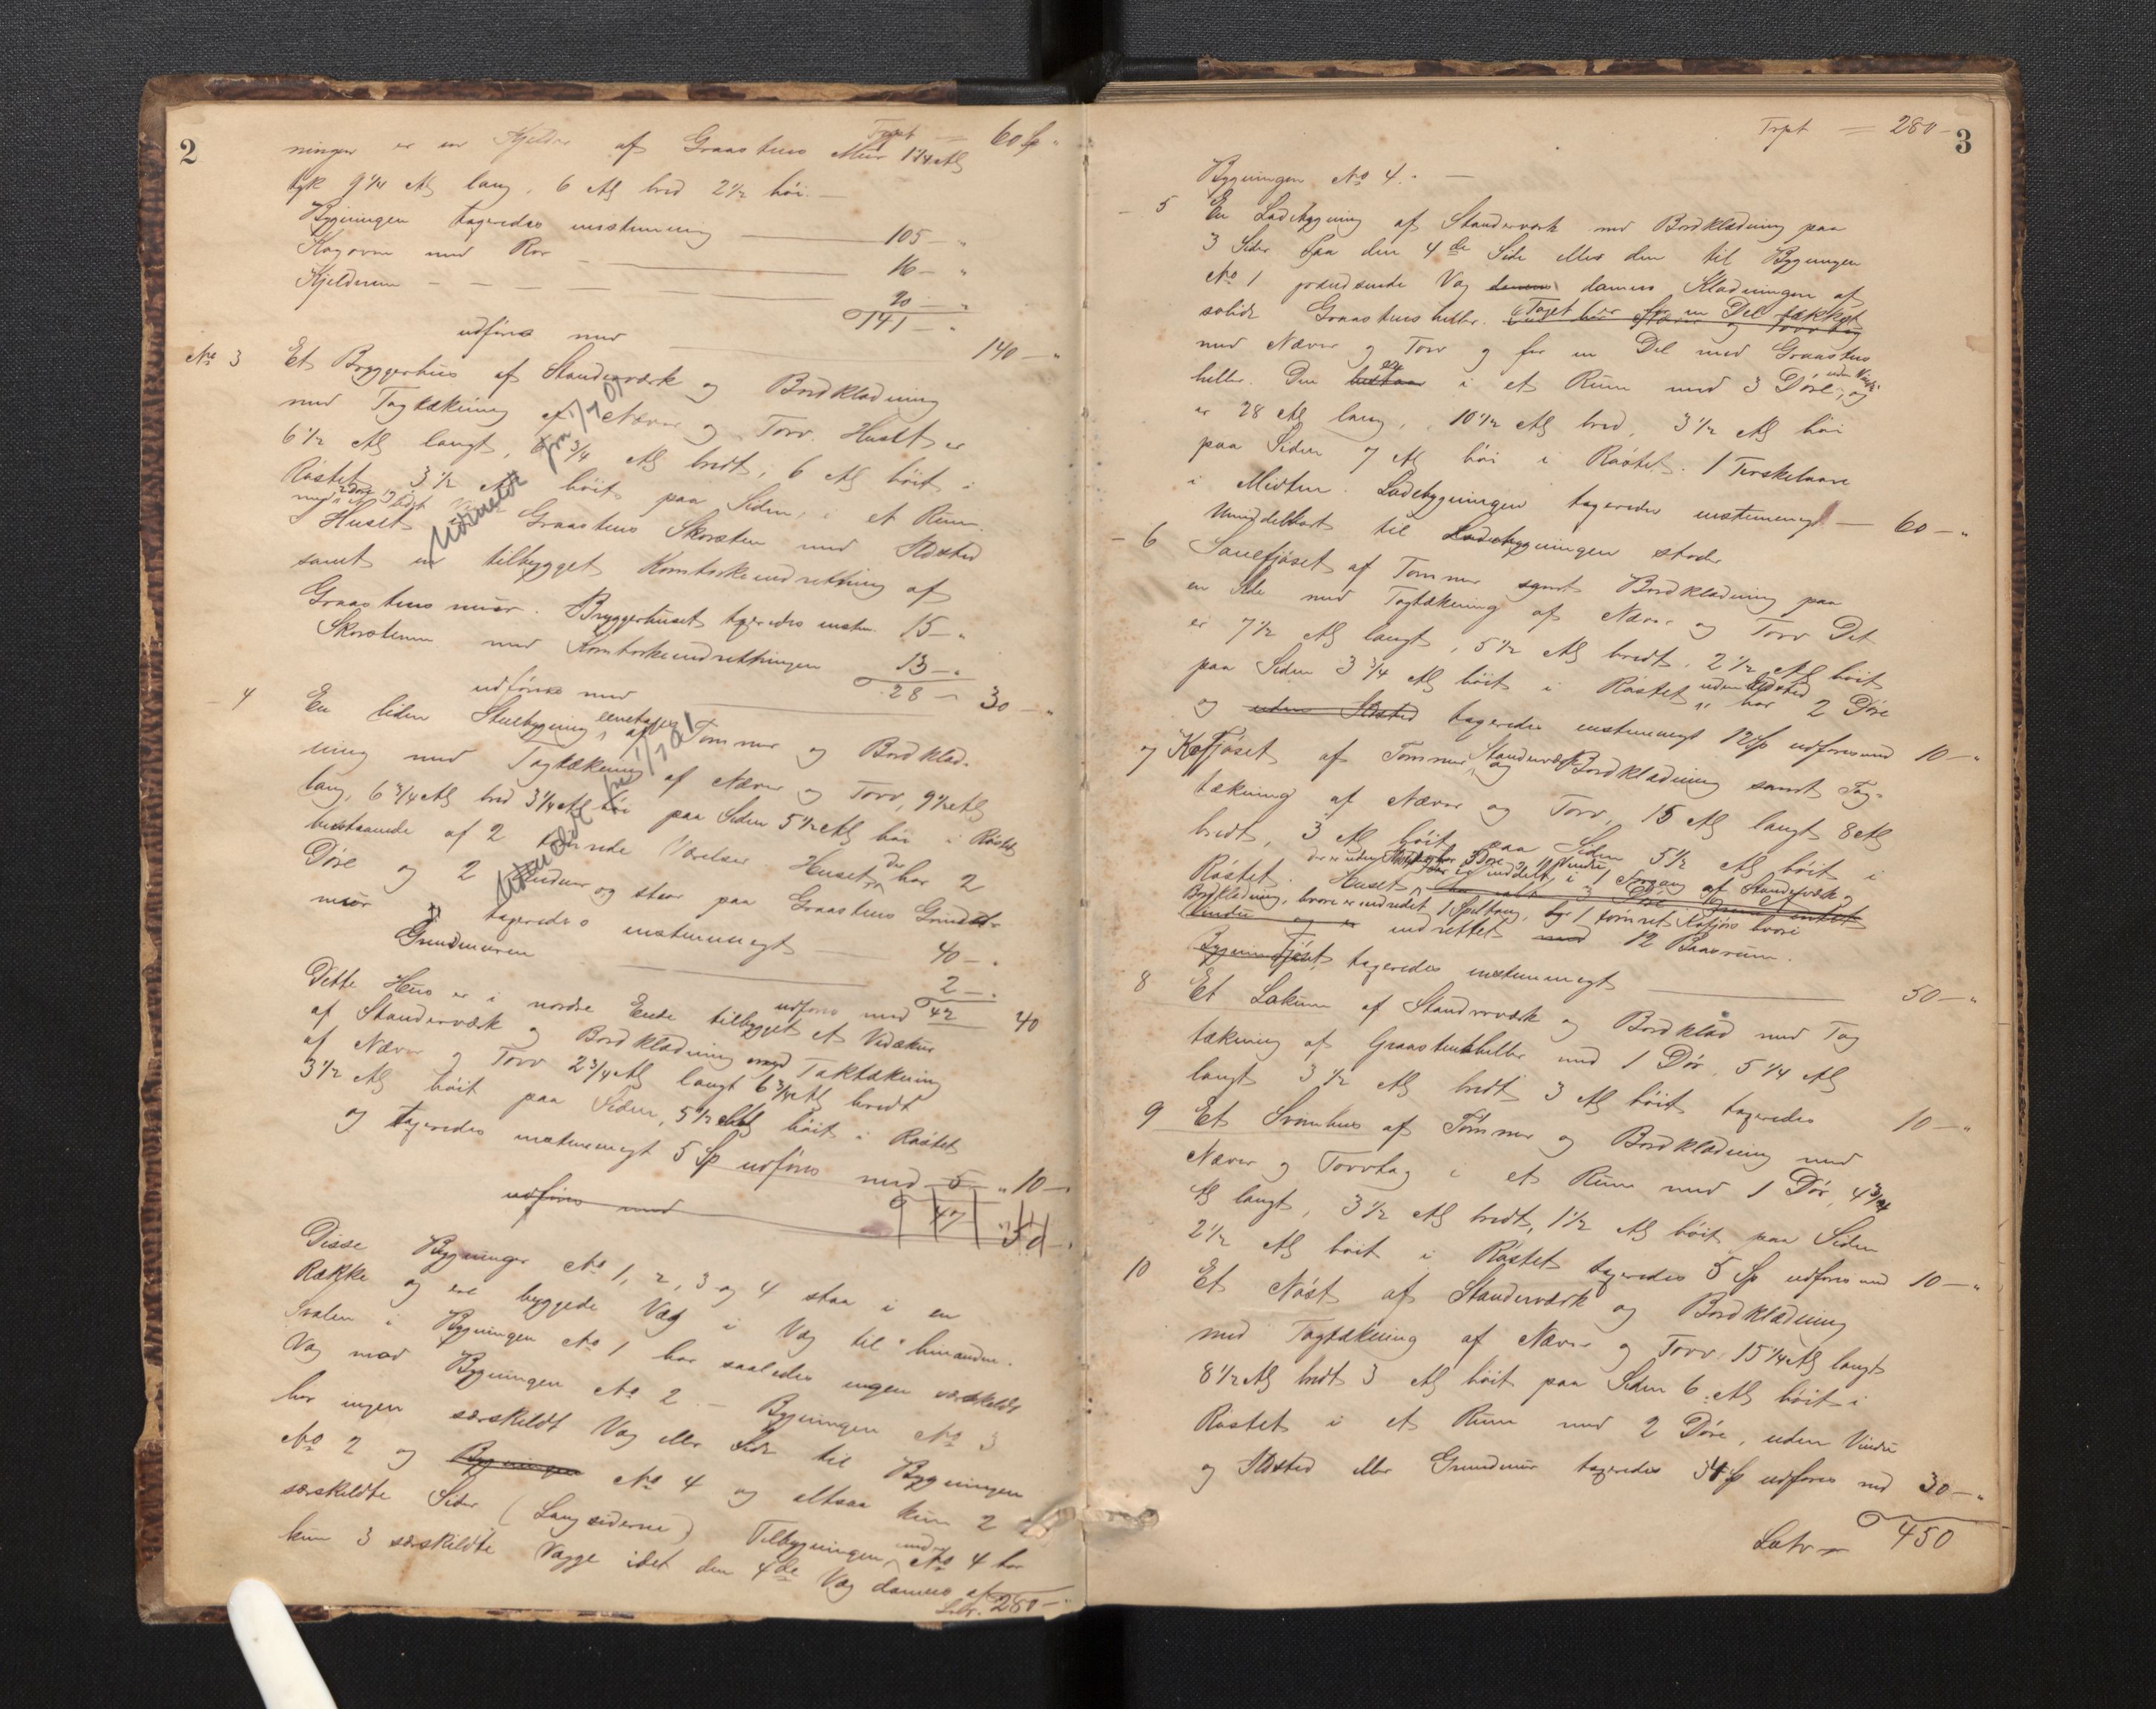 2
Trpt = 60 Sp "
ningen er en Kjelder af Graastens Muur 1 1/4 Al
tyk 9 1/4 Al lang, 6 Al bred 2 1/2 høi. —
Bygningen taxeredes enstemmig — 105 — "
Kagovn med Rør — 16 — "
Kjelderen — — — 20 — "
141 — "
udføres med — 140 — "
No 3 Et Bryggerhus af Standerværk og Bordklædning
med Tagtækning af Næver og Torv. Huset er
6 1/2 Al langt, 6 3/4 Al bredt, 6 Al høit i
Røstet 3 1/2 Al høit paa Siden, i et Rum
med 2 Døre
Huset Graastens Skorsten med Ildsted
Udmeldt fra 1/7 01
samt en tilbygget Korntørkeindretning af
Graastens muur. Bryggerhuset taxeredes enstem. 15 — "
Skorstenen med Korntørkeindretningen 13 — "
28 —
udføres med — 30 — "
- 4 En liden Stuebygning eenetages af Tømmer og Bordklæd-
ning med Tagtækning af Næver og Torv, 9 1/2 Al
lang, 6 3/4 Al bred 3 1/4 Al høi paa Siden 5 1/2 Al høi i Røstet
bestaaende af 2 Værelser Huset der har 2
Udmeldt fra 1/7 01
Døre og 2 Vinduer og staar paa Graastens Grund-
muur taxeredes enstemmigt — 40 — "
Grundmuren — 2 — "
udføres med 42 40
Dette Hus er i nordre Ende tilbygget et Vedskur
af Standerværk og Bordklædning med Taktækning
af Næver og Torv 2 3/4 Al langt 6 3/4 Al bredt
3 1/2 Al høit paa Siden, 5 1/2 Al høit i Røstet
og taxeredes enstemmigt 5 Sp udføres med 5 " 10 — "
udføres med 47 50 — "
Disse Bygninger No 1, 2, 3 og 4 staa i en
Række og ere byggede Væg i Væg til hinanden.
Svalen i Bygningen No 1 har saaledes ingen særskildt
Væg mod Bygningen No 2. — Bygningen No 3
har ingen særskildt Væg eller Side til Bygningen
No 2 og Bygningen No 4 og altsaa kun 2
særskildte Sider (Langsiderne) Tilbygningen under No 4 har
kun 3 særskildte Vægge idet den 4de Væg dannes af
Latr. 280 —
3
Trpt = 280 —
Bygningen No 4. —
- 5 En Ladebygning af Standerværk med Bordklædning paa
3 Sider. Paa den 4de Side eller den til Bygningen
No 1 grændsende Væg dannes dannes Klædningen af
solide Graastensheller. Taget er for en Del tækket
med Næver og Torv og for en Del med Graastens
heller. Den bestaar er i et Rum med 3 Døre, uden Vindu og
er 28 Al lang, 10 1/2 Al bred, 3 1/2 Al høi
paa Siden 7 Al høi i Røstet. 1 Terskelaave
i Midten. Ladebygningen taxeredes enstemmigt — 60 — "
Umiddelbart til Ladebygningen støder
- 6 Sauefjøset af Tømmer samt Bordklædning paa
en Side med Tagtækning af Næver og Torv Det
er 7 1/2 Al langt, 5 1/2 Al bredt, 2 1/2 Al høit
paa Siden 3 3/4 Al høit i Røstet uden Ildsted har 2 Døre
og uden Ildsted taxeredes enstemmigt 12 Sp udføres med 10 — "
og 7 Kofjøset af Tømmer, Standerværk og Bordklædning samt Tag-
tækning af Næver og Torv, 15 Al langt 8 Al
bredt, 3 Al høit paa Siden 5 1/2 Al høit i
Røstet. Huset der er uden Ildsted har 3 Døre 1 Vindu
er inddelt i 1 Forgang af Standerværk og
Bordklædning, hvori er indredet 1 Spiltoug, og 1 tømret Kofjøs hvori
Vindu og er indrettet med 12 Baasrum.
Bygnin Fjøset taxeredes enstemmigt — 50 — "
8 Et Løkum af Standerværk og Bordklæd med Tag
tækning af Graastensheller med 1 Dør, 5 1/4 Al
langt 3 1/2 Al bredt 3 Al høit taxeredes 10 — "
9 Et Svinhus af Tømmer og Bordklædning med
Næver og Torvtag i et Rum med 1 Dør, 4 3/4
Al langt, 3 1/2 Al bredt, 1 1/2 Al høit paa Siden
2 1/2 Al høit i Røstet taxeredes 5 Sp udføres med 10 — "
10 Et Nøst af Standerværk og Bordklædning
med Tagtækning af Næver og Torv, 15 1/4 Al langt
8 1/2 Al bredt 3 Al høit paa Siden 6 Al høit i
Røstet i et Rum med 2 Døre, uden Vindu
og Ildsted eller Grundmur taxeredes 34 Sp udføres med 30 — "
Latr — 450